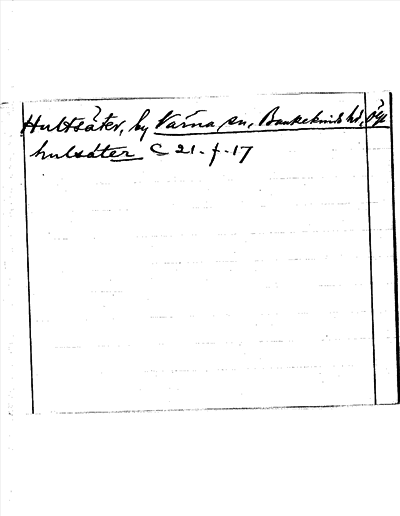 Hultsäter, by Värna sn, Bankekinds hd, Ög.
hulsäter C 21-f-17